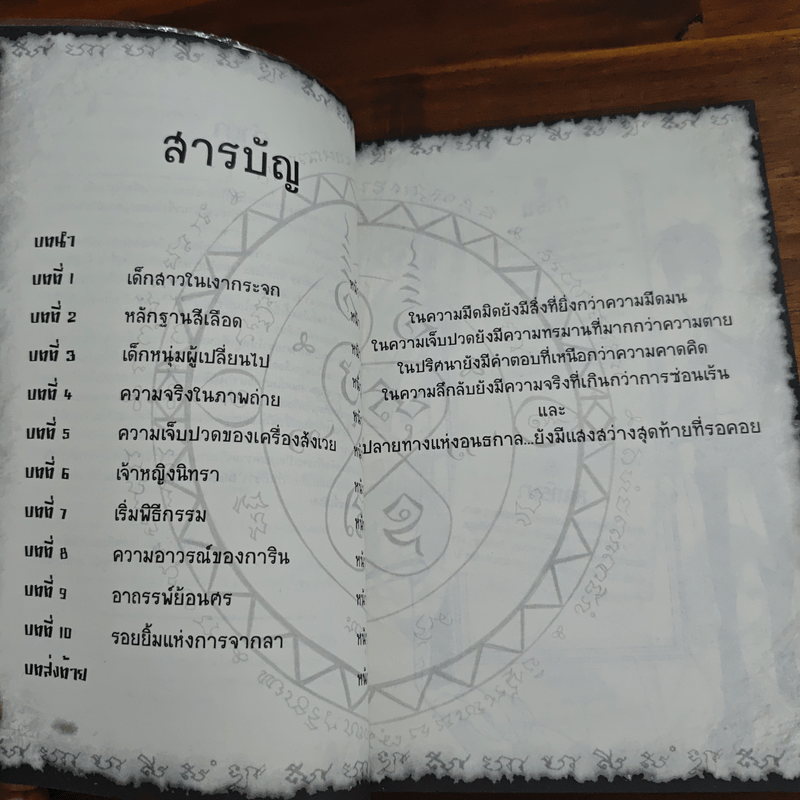 สารบัญ
บทนำ
บทที่ 1 เด็กสาวในเงากระจก
บทที่ 2 หลักฐานสีเลือด
บทที่ 3 เด็กหนุ่มผู้เปลี่ยนไป
บทที่ 4 ความจริงในภาพถ่าย
บทที่ 5 ความเจ็บปวดของเครื่องสังเวย
บทที่ 6 เจ้าหญิงนิทรา
บทที่ 7 เริ่มพิธีกรรม
บทที่ 8 ความอาวรณ์ของการิน
บทที่ 9 อาถรรพ์ย้อนศร
บทที่ 10 รอยยิ้มแห่งการจากลา
บทส่งท้าย
ในความมืดมิดยังมีสิ่งที่ยิ่งกว่าความมืดมน
ในความเจ็บปวดยังมีความทรมานที่มากกว่าความตาย
ในปริศนายังมีคำตอบที่เหนือกว่าความคาดคิด
ในความลึกลับยังมีความจริงที่เกินกว่าการซ่อนเร้น
และ
ปลายทางแห่งอนธกาล...ยังมีแสงสว่างสุดท้ายที่รอคอย